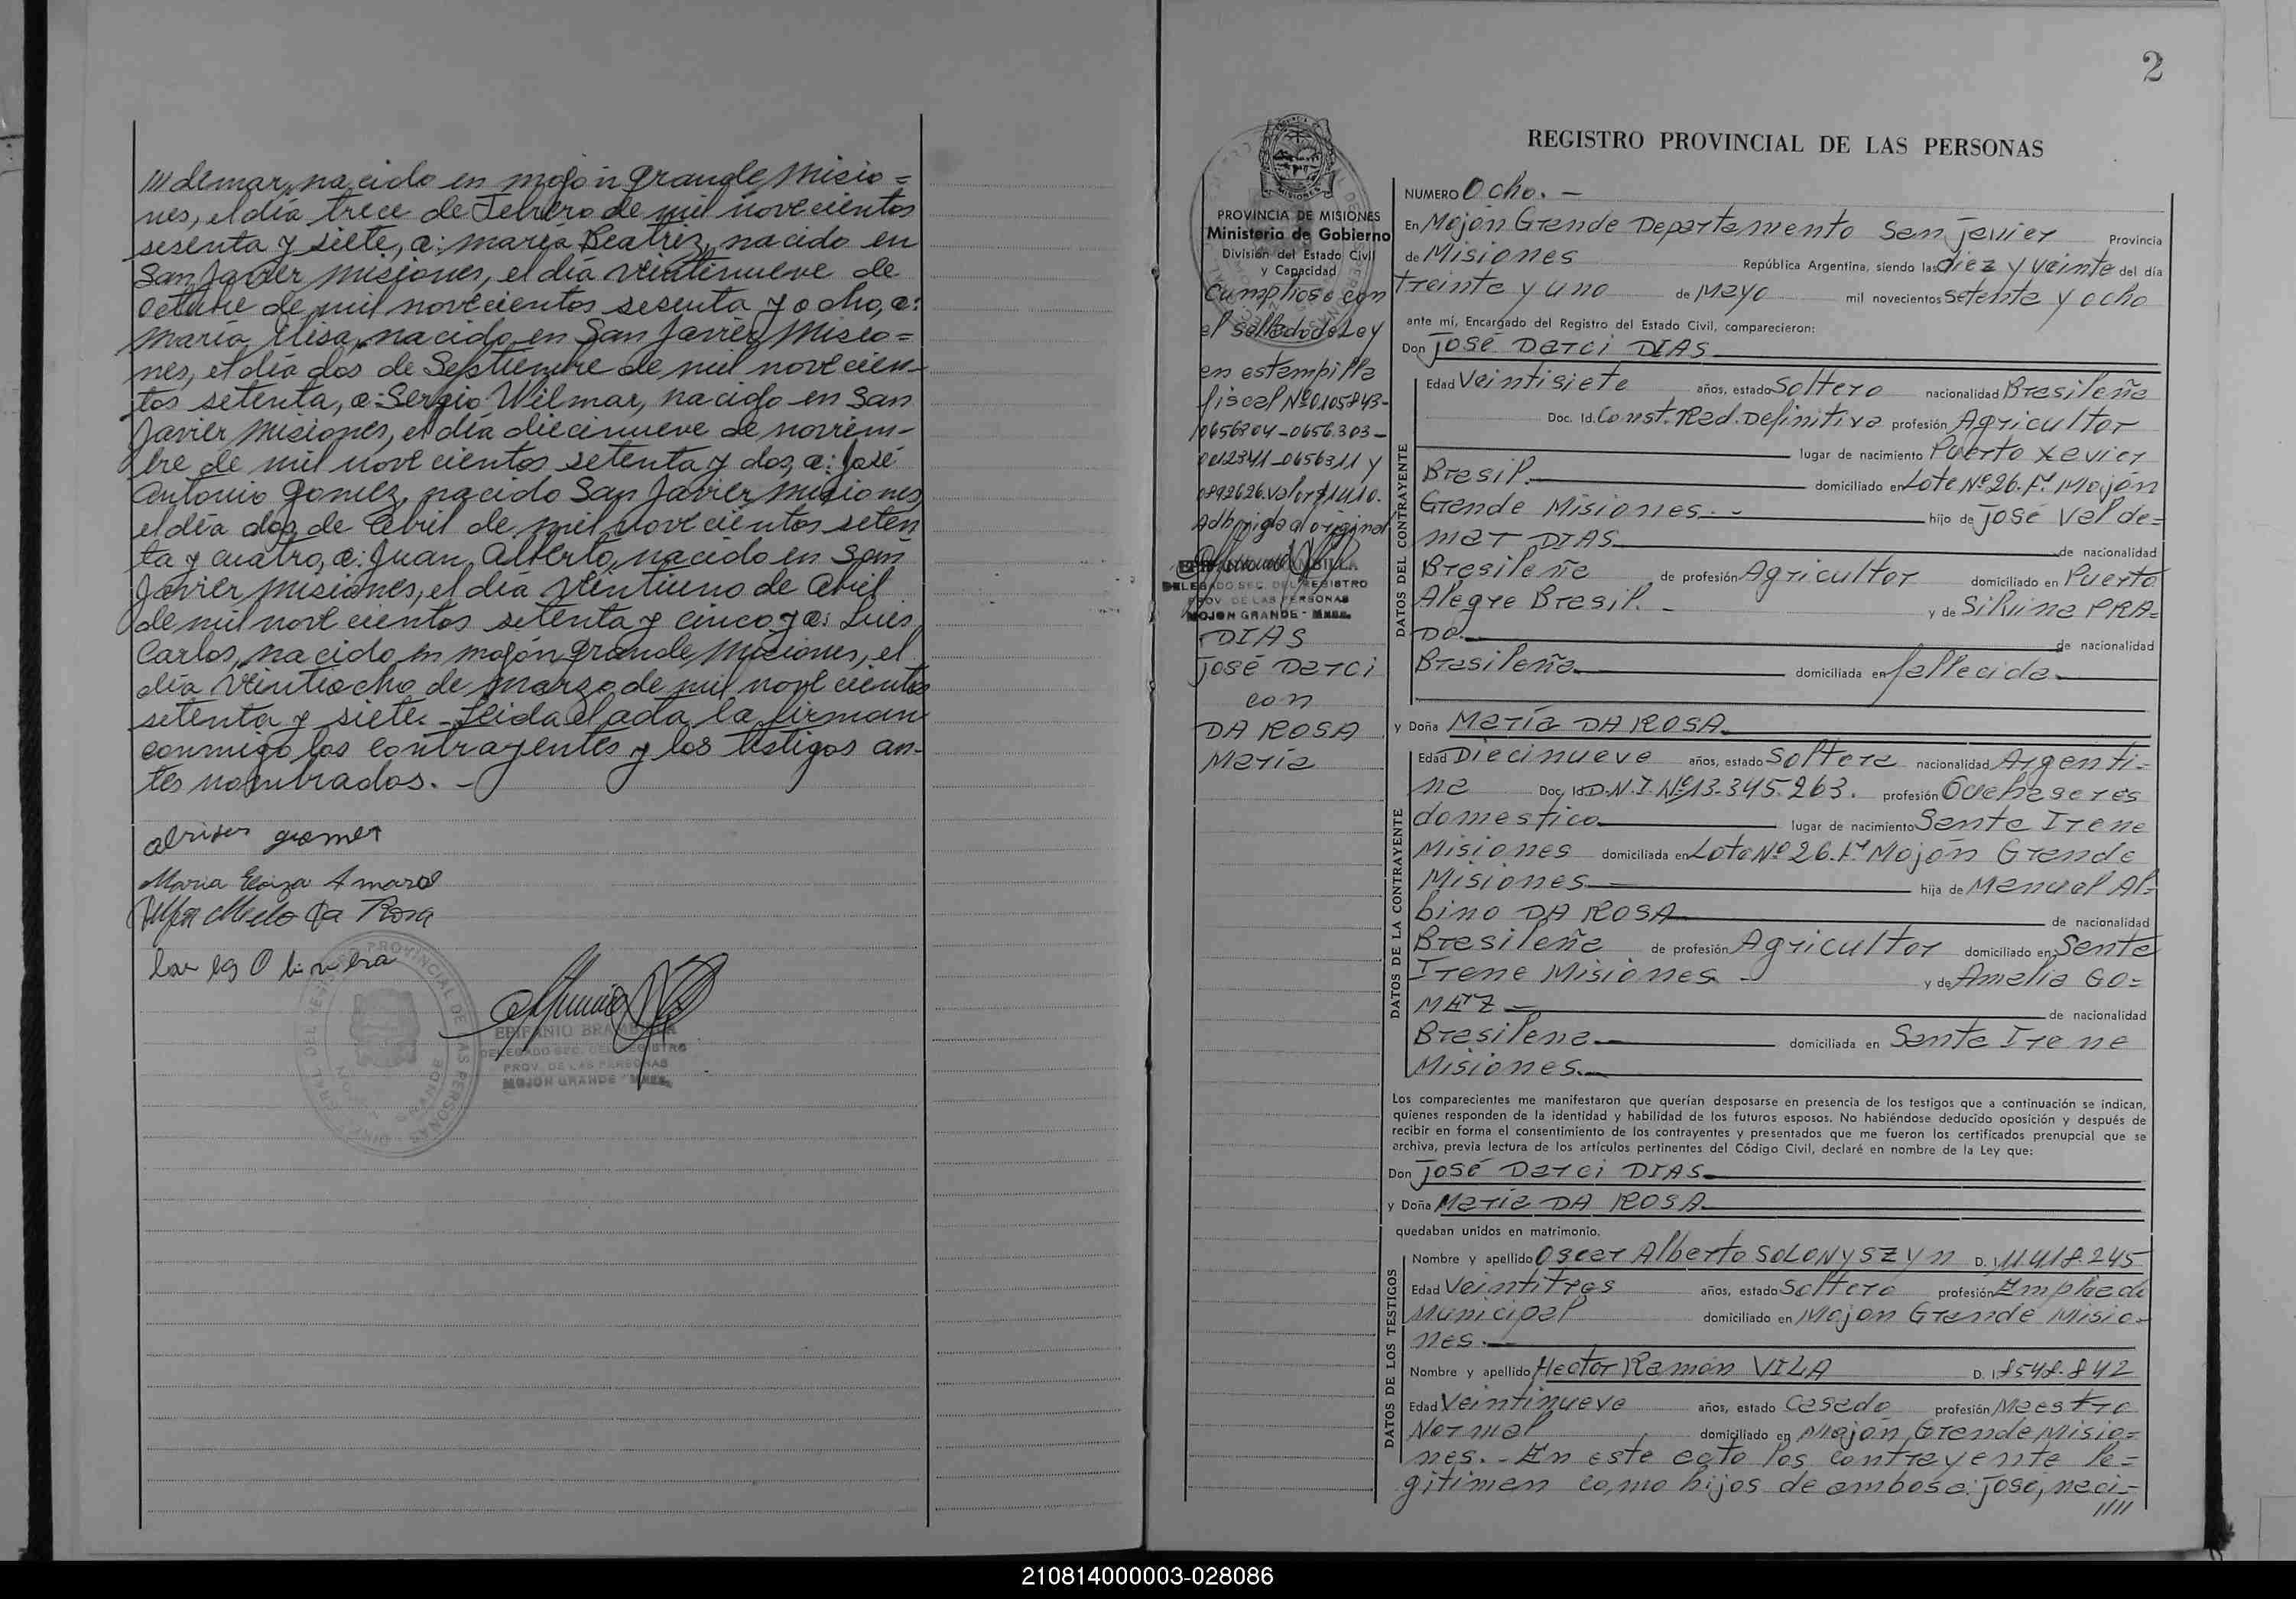 //// demar, nacido en mojón grande, Misio=
nes, el día trece de Febrero de mil novecientos
sesenta y siete, a: maría Beatriz, nacido en
San Javier Misiones, el día veintinueve de
octubre de mil novecientos sesenta y ocho, a:
María Elisa, nacido en San Javier Misio=
nes, el día dos de Septiembre de mil novecien-
tos setenta, a: Sergio Wilmar, nacido en San
Javier Misiones, el día diecinueve de noviem-
bre de mil novecientos setenta y dos, a: José
Antonio gomez, nacido San Javier Misiones,
el día dos de Abril de mil novecientos seten
ta y cuatro, a: Juan Alberto, nacido en San
Javier Misiones, el día veintiuno de Abril
de mil novecientos setenta y cinco y a: Luis
Carlos, nacido en mojón grande, Misiones, el
día Veintiocho de Marzo de mil novecientos
setenta y siete. - Leida el acta la firman
conmigo los contrayentes y los testigos an-
tes nombrados. -
gomes
Maria Amaral
Melo Da Rosa
Oliveira
EPIFANIO BRAMBILLA
DELEGADO SEC. DEL REGISTRO
PROV. DE LAS PERSONAS
MOJON GRANDE - MNES.
2
REGISTRO PROVINCIAL DE LAS PERSONAS
PROVINCIA DE MISIONES
Ministerio de Gobierno
División del Estado Civil
y Capacidad
Cumpliose con
el Sellado de Ley
en estampilla
fiscal Nº 0105843-
0656304-0656.303-
0612341-0656311 y
0892626. valor $1410.
Adherida al original
EPIFANIO BRAMBILLA
DELEGADO SEC. DEL REGISTRO
PROV. DE LAS PERSONAS
MOJON GRANDE - MNES.
DIAS
José Darci
con
DA ROSA
María
NUMERO Ocho. -
En Mojón Grande Departamento San Javier Provincia
de Misiones República Argentina, siendo las diez y veinte del día
treinta y uno de Mayo mil novecientos setenta y ocho
ante mí, Encargado del Registro del Estado Civil, comparecieron:
Don José Darci DIAS
DATOS DEL CONTRAYENTE
Edad Veintisiete años, estado Soltero nacionalidad Brasileña
Doc. Id. Const. Rad. Definitiva profesión Agricultor
lugar de nacimiento Puerto Xavier
Brasil. domiciliado en Lote Nº 26. Fr. Mojón
Grande Misiones. - hijo de José Valde=
mar DIAS de nacionalidad
Brasileña de profesión Agricultor domiciliado en Puerto
Alegre Brasil. - y de Silvina PRA=
DO. de nacionalidad
Brasileña domiciliada en fallecida
y Doña María DA ROSA
DATOS DE LA CONTRAYENTE
Edad Diecinueve años, estado Soltera nacionalidad Argenti=
na Doc. Id. D.N.I. Nº 13.345.263. profesión Quehaceres
domestico lugar de nacimiento Santa Irene
Misiones domiciliada en Lote Nº 26. Fr Mojón Grande
Misiones hija de Manuel Al=
bino DA ROSA de nacionalidad
Brasileña de profesión Agricultor domiciliado en Santa
Irene Misiones - y de Amelia GO=
MEZ de nacionalidad
Brasilena domiciliada en Santa Irene
Misiones.
Los comparecientes me manifestaron que querían desposarse en presencia de los testigos que a continuación se indican,
quienes responden de la identidad y habilidad de los futuros esposos. No habiéndose deducido oposición y después de
recibir en forma el consentimiento de los contrayentes y presentados que me fueron los certificados prenupcial que se
archiva, previa lectura de los artículos pertinentes del Código Civil, declaré en nombre de la Ley que:
Don José Darci DIAS
y Doña María DA ROSA
quedaban unidos en matrimonio.
DATOS DE LOS TESTIGOS
Nombre y apellido Oscar Alberto SOLONYSZYN D. I. 11.418.245
Edad Veintitres años, estado Soltero profesión Empleado
Municipal domiciliado en Mojon Grande Misio-
nes. -
Nombre y apellido Hector Ramón VILA D. I. 8548.842
Edad Veintinueve años, estado Casado profesión Maestro
Normal domiciliado en Mojón Grande Misio=
nes. - En este acto los contrayente le=
gitiman como hijos de ambos a: José, naci-
////
210814000003-028086